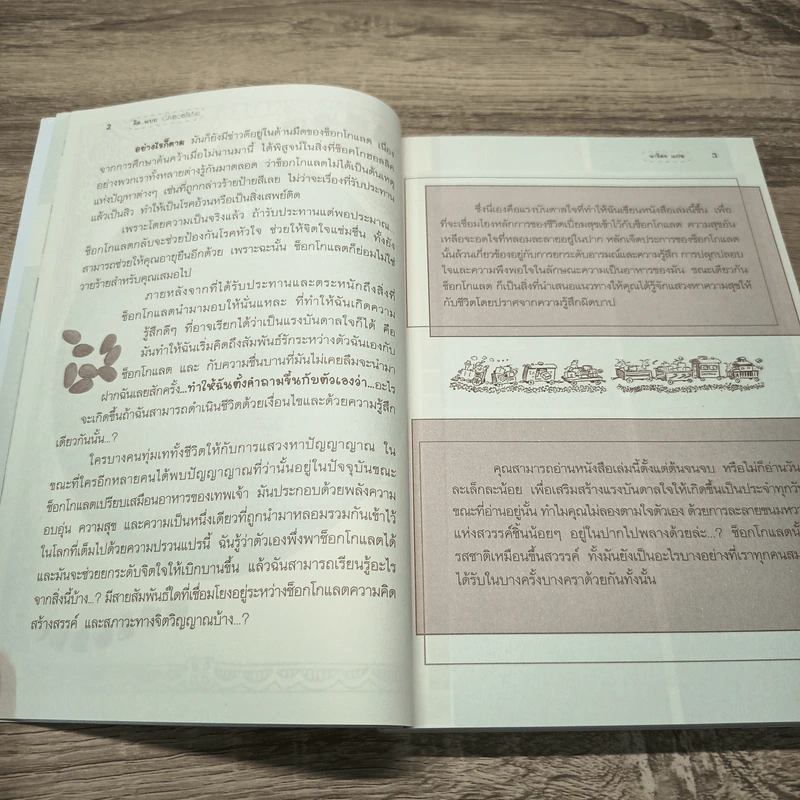 2
อย่างไรก็ตาม มันก็ยังมีข่าวดีอยู่ในด้านมืดของช็อกโกแลต เนื่อง
จากการศึกษาค้นคว้าเมื่อไม่นานมานี้ ได้พิสูจน์ในสิ่งที่ช็อคโกฮอลลิค
อย่างพวกเราทั้งหลายต่างรู้กันมาตลอด ว่าช็อกโกแลตไม่ได้เป็นต้นเหตุ
แห่งปัญหาต่างๆ เช่นที่ถูกกล่าวร้ายป้ายสีเลย ไม่ว่าจะเรื่องที่รับประทาน
แล้วเป็นสิว ทำให้เป็นโรคอ้วนหรือเป็นสิ่งเสพย์ติด
เพราะโดยความเป็นจริงแล้ว ถ้ารับประทานแต่พอประมาณ...
ช็อกโกแลตกลับจะช่วยป้องกันโรคหัวใจ ช่วยให้จิตใจแช่มชื่น ทั้งยัง
สามารถช่วยให้คุณอายุยืนอีกด้วย เพราะฉะนั้น ช็อกโกแลตก็ย่อมไม่ใช่
วายร้ายสำหรับคุณเสมอไป
ภายหลังจากที่ได้รับประทานและตระหนักถึงสิ่งที่
ช็อกโกแลตนำมามอบให้นั่นแหละ ที่ทำให้ฉันเกิดความ
รู้สึกดีๆ ที่อาจเรียกได้ว่าเป็นแรงบันดาลใจก็ได้ คือ
มันทำให้ฉันเริ่มคิดถึงสัมพันธ์รักระหว่างตัวฉันเองกับ
ช็อกโกแลต และ กับความชื่นบานที่มันไม่เคยลืมจะนำมา
ฝากฉันเลยสักครั้ง...ทำให้ฉันตั้งคำถามขึ้นกับตัวเองว่า...อะไร
จะเกิดขึ้นถ้าฉันสามารถดำเนินชีวิตด้วยเงื่อนไขและด้วยความรู้สึก
เดียวกันนั้น...?
ใครบางคนทุ่มเททั้งชีวิตให้กับการแสวงหาปัญญาญาณ ใน
ขณะที่ใครอีกหลายคนได้พบปัญญาญาณที่ว่านั้นอยู่ในปัจจุบันขณะ
ช็อกโกแลตเปรียบเสมือนอาหารของเทพเจ้า มันประกอบด้วยพลังความ
อบอุ่น ความสุข และความเป็นหนึ่งเดียวที่ถูกนำมาหลอมรวมกันเข้าไว้
ในโลกที่เต็มไปด้วยความปรวนแปรนี้ ฉันรู้ว่าตัวเองพึ่งพาช็อกโกแลตได้
และมันจะช่วยยกระดับจิตใจให้เบิกบานขึ้น แล้วฉันสามารถเรียนรู้อะไร
จากสิ่งนี้บ้าง...? มีสายสัมพันธ์ใดที่เชื่อมโยงอยู่ระหว่างช็อกโกแลตความคิด
สร้างสรรค์ และสภาวะทางจิตวิญญาณบ้าง...?
3
ซึ่งนี่เองคือแรงบันดาลใจที่ทำให้ฉันเขียนหนังสือเล่มนี้ขึ้น เพื่อ
ที่จะเชื่อมโยงหลักการของชีวิตเปี่ยมสุขเข้าไว้กับช็อกโกแลต ความสุขอัน
เหลือจะอดใจที่หลอมละลายอยู่ในปาก หลักเจ็ดประการของช็อกโกแลต
นั้นล้วนเกี่ยวข้องอยู่กับการยกระดับอารมณ์และความรู้สึก การปลุกปลอบ
ใจและความพึงพอใจในลักษณะความเป็นอาหารของมัน ขณะเดียวกัน
ช็อกโกแลต ก็เป็นสิ่งที่นำเสนอแนวทางให้คุณได้รู้จักแสวงหาความสุขให้
กับชีวิตโดยปราศจากความรู้สึกผิดบาป
คุณสามารถอ่านหนังสือเล่มนี้ตั้งแต่ต้นจนจบ หรือไม่ก็อ่านวัน
ละเล็กละน้อย เพื่อเสริมสร้างแรงบันดาลใจให้เกิดขึ้นเป็นประจำทุกวัน
ขณะที่อ่านอยู่นั้น ทำไมคุณไม่ลองตามใจตัวเอง ด้วยการละลายขนมหวาน
แห่งสวรรค์ชิ้นน้อยๆ อยู่ในปากไปพลางด้วยล่ะ...? ช็อกโกแลตนั้น
รสชาติเหมือนขึ้นสวรรค์ ทั้งมันยังเป็นอะไรบางอย่างที่เราทุกคนสม
ได้รับในบางครั้งบางคราด้วยกันทั้งนั้น